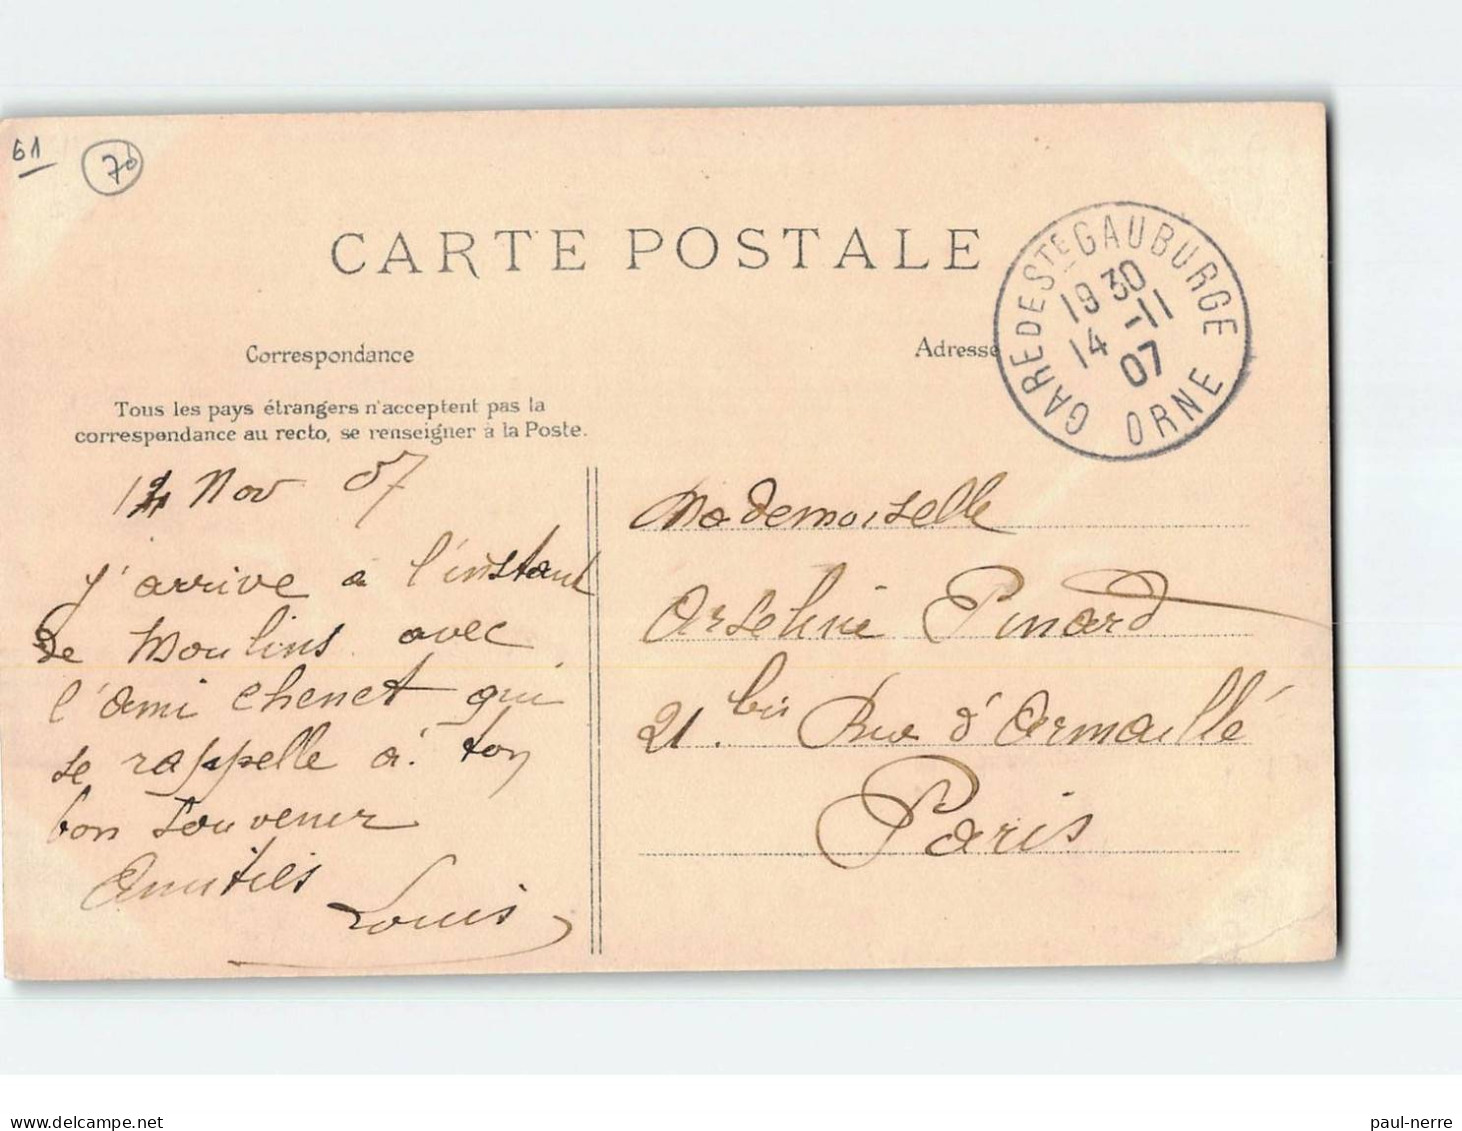 61
70
CARTE POSTALE
GARE DE STE GAUBURGE
19 30
14 -11
07
ORNE
Correspondance
Adresse
Tous les pays étrangers n'acceptent pas la
correspondance au recto, se renseigner à la Poste.
14 Nov 07
J'arrive à l'instant
de Moulins avec
l'ami Chenet qui
se rappelle à ton
bon souvenir
Amitiés
Louis
Mademoiselle
Pinard
21 bis Rue d'Armaillé
Paris
delcampe.net
paul-nerre